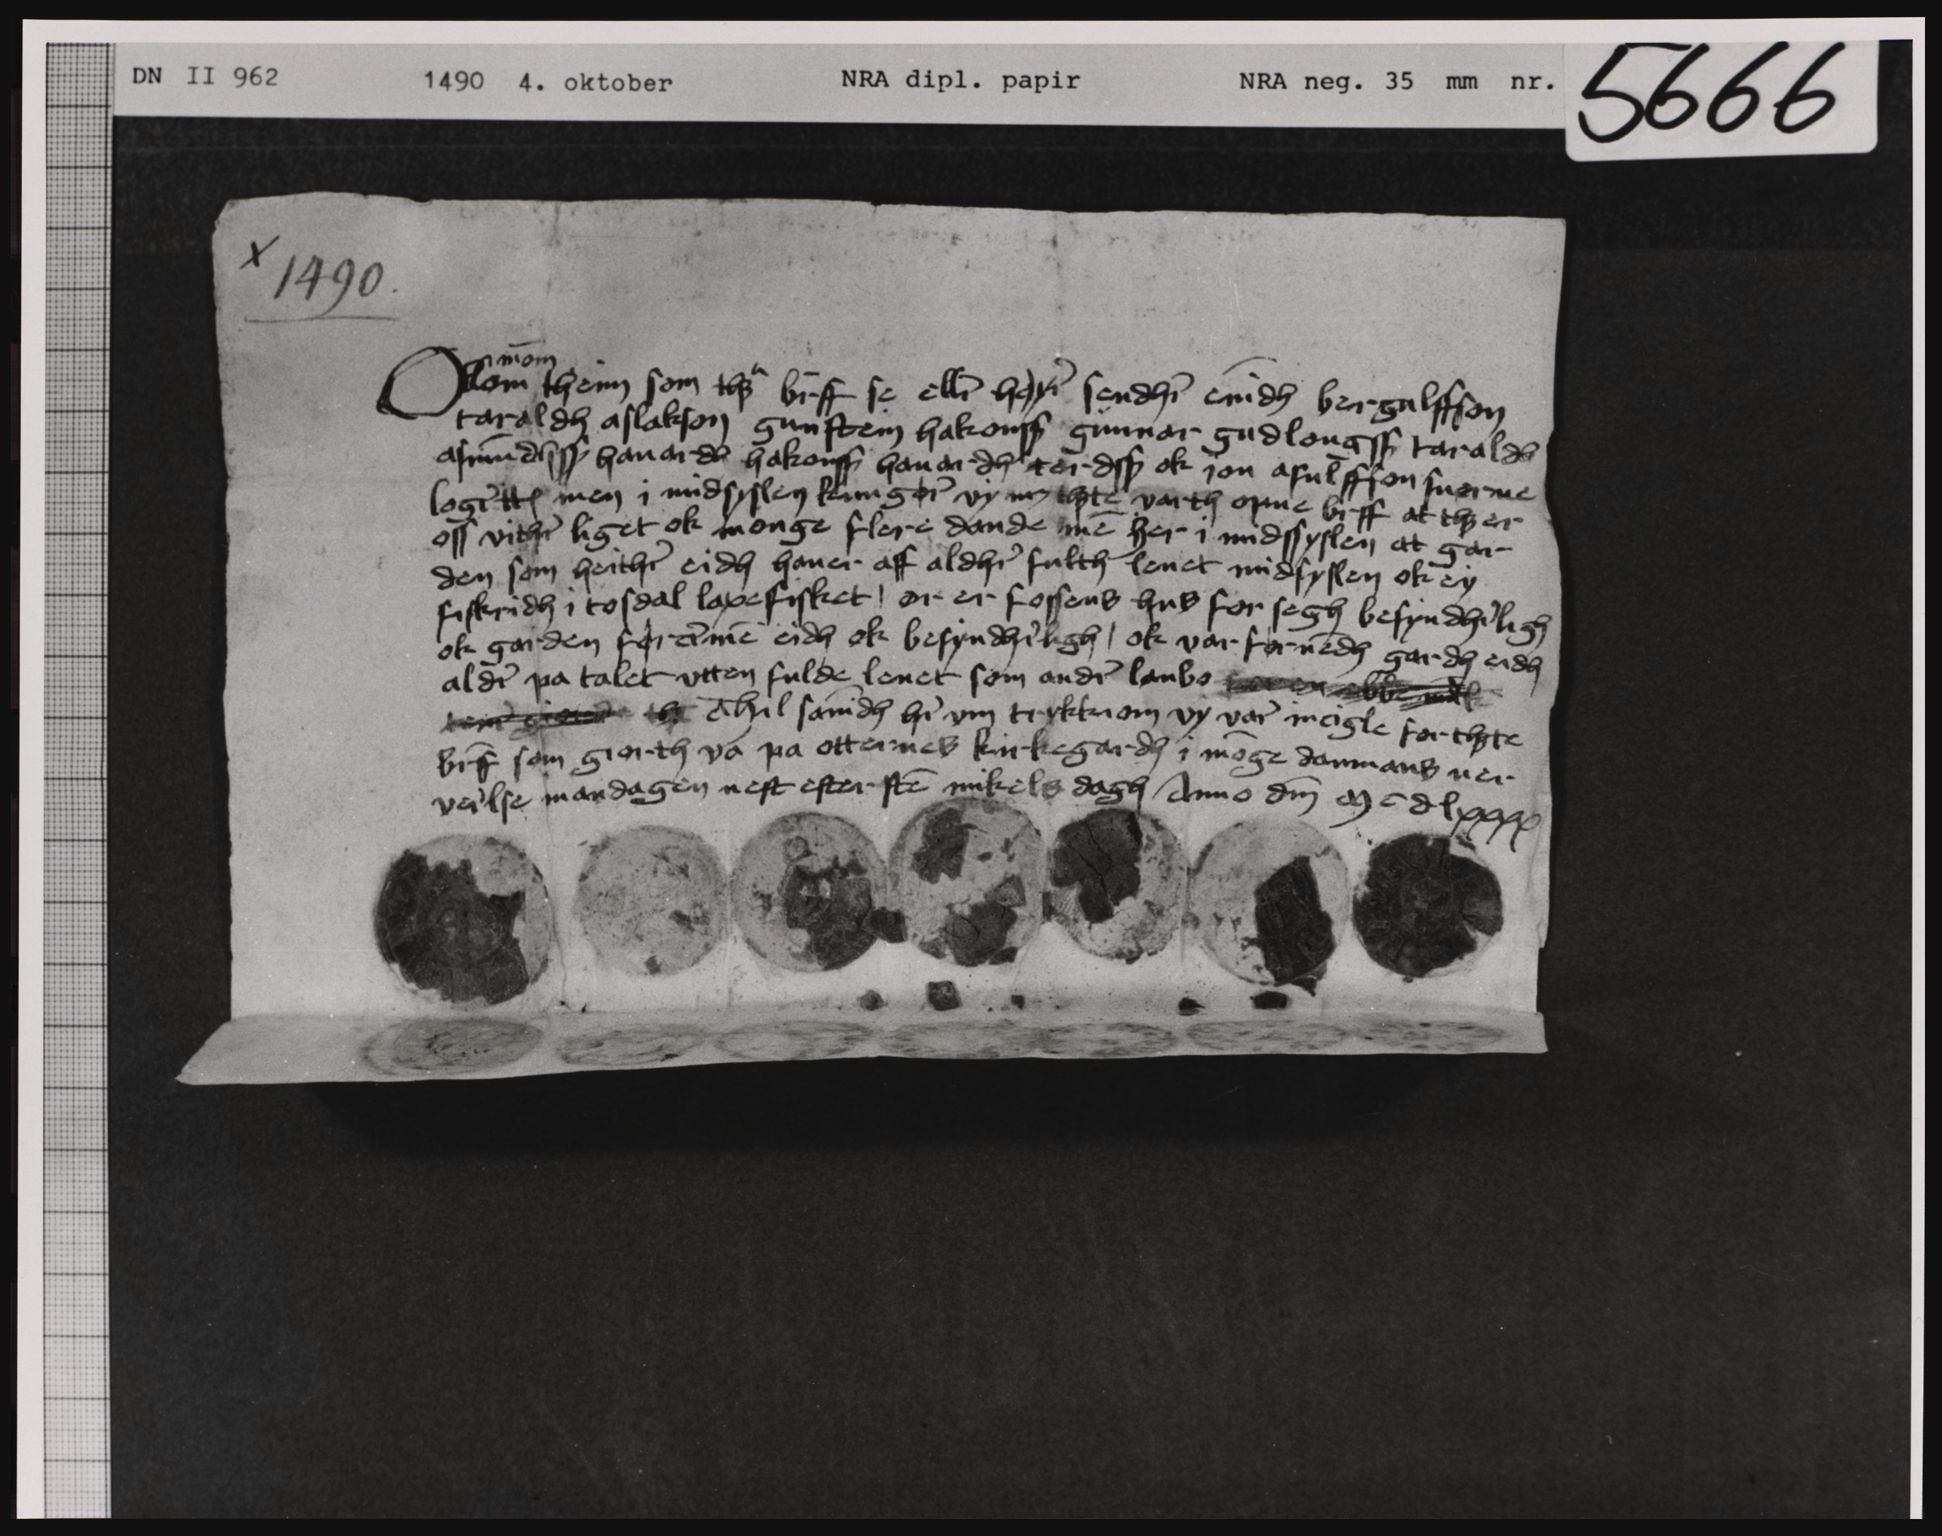 DN II 962 1490 4. oktober NRA dipl. papir NRA neg. 35 mm nr. 5666
x 1490.
mōm
Ollom theim som thꝫ brff se ellr̄ høyr̄ sendhr̄ emīdh bergulffson
taraldh aslakson gunstein hakonsꝭ gunnar gudlougsꝭ taraldh
asmūdhsꝭ hauardh hakonsꝭ hauardh tordsꝭ ok jon asulffson suorne
logrett men j midsyslen kunnger̄ vy m thꝫte varth opne brff at thꝫ er
oss vithr̄ liget ok monge flere dande mē her i midssyslen at gar
den som heithr̄ eidh hauer aff aldhr̄ fulth lenet midsyslen ok ey
fiskridh i tosdal laxefisket / or er fossens hus for segh besyndhr̄ligh
ok garden for:mē eidh ok besyndhr̄ligh / ok var fornēdh gardh eidh
aldr̄ pa talet vtten fulde lenet som andr̄ lanbo
Til sānīdh hr̄ vm tryktiom vy var̄ incigle for thꝫte
brff som giorth va pa otternes kirkegardh i mōge danmans ner
verilse mandagen nest efter stē mikels dagh Anno dm̄ m c d lxxxx